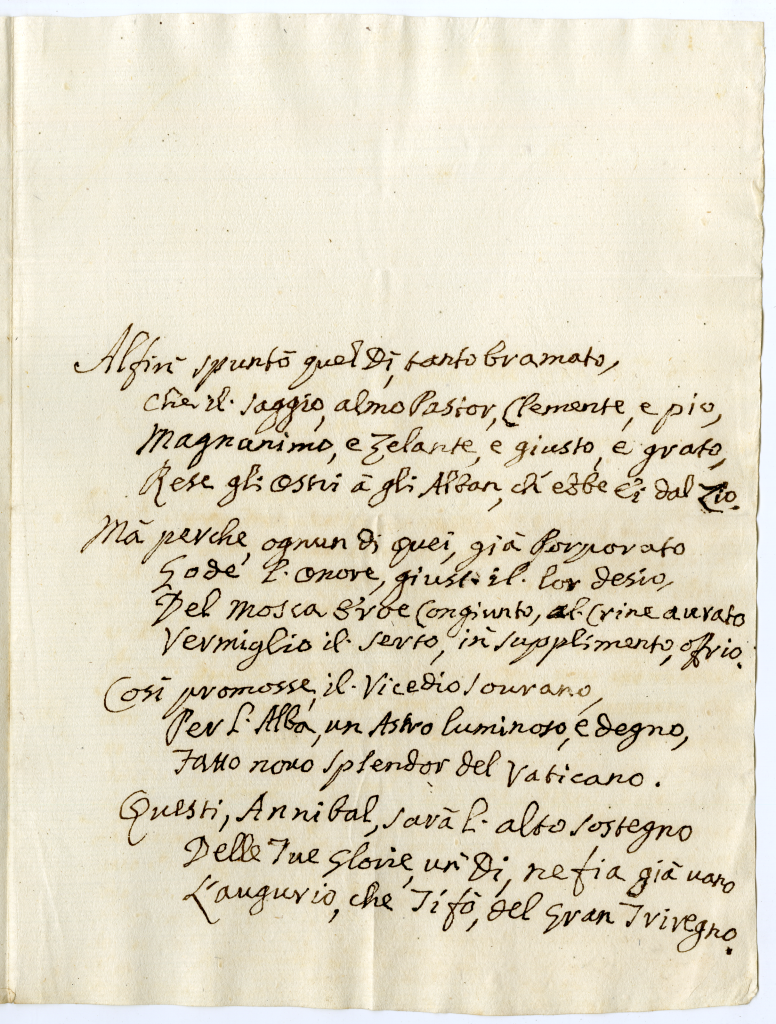 Alfin spuntò quel Dì, tanto bramato,
che il saggio, almo Pastor, Clemente, e pio,
Magnanimo, e Zelante, e giusto, e grato,
Rese gli Ostri à gli Alban, ch' ebbe ei dal Zio.
Mà perche, ognun di quei, già Porporato
Gode' l' Onore, giust' il lor desio,
Del Mosca Eroe Congiunto, al Crine aurato
Vermiglio il serto, in supplimento, offrio.
Così promosse, il Vicedio sourano,
Per l' Alba, un Astro luminoso, e degno,
Fatto novo splendor del Vaticano.
Questi, Annibal, sarà l' alto sostegno
Delle Tue Glorie, un Dì, ne fia già vano
L'augurio, che Ti fò, del Gran Triregno.